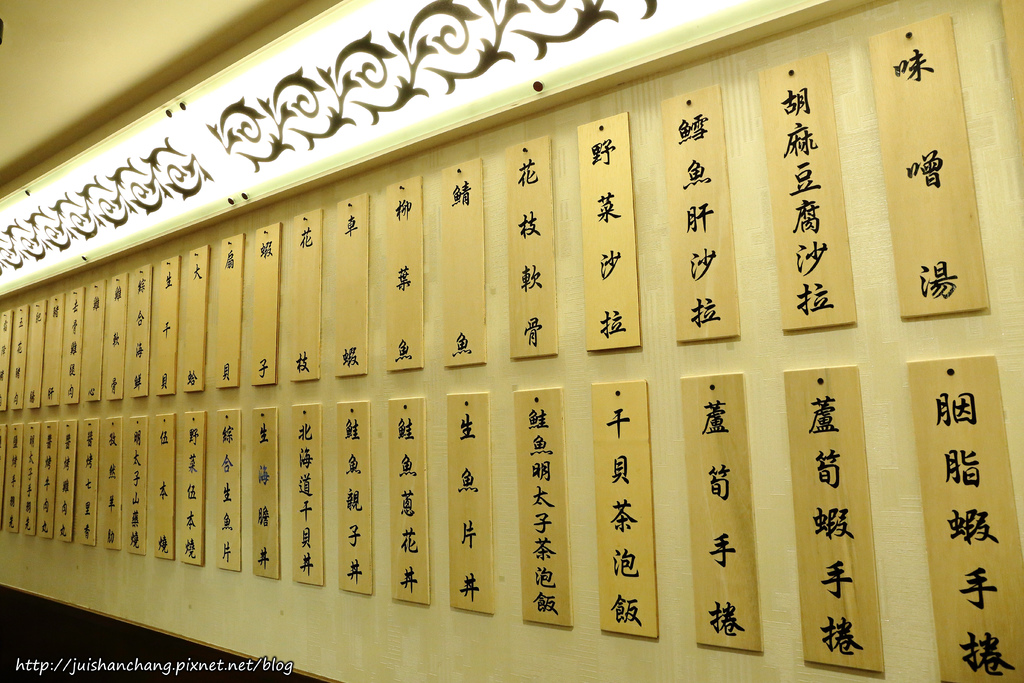 味噌湯
胡麻豆腐沙拉
鱈魚肝沙拉
野菜沙拉
花枝軟骨
鯖魚
柳葉魚
車蝦
花枝
蝦子
扇貝
大蛤
生干貝
綜合海鮮
雞軟骨
雞心
去骨雞腿肉
胭脂蝦手捲
蘆筍蝦手捲
蘆筍手捲
干貝茶泡飯
鮭魚明太子茶泡飯
生魚片丼
鮭魚蔥花丼
鮭魚親子丼
北海道干貝丼
生海膽丼
綜合生魚片
野菜伍本燒
伍本燒
明太子山藥燒
孜然羊肋
醬烤七里香
醬烤雞肉丸
醬烤牛肉丸
http://juishanchang.pixnet.net/blog